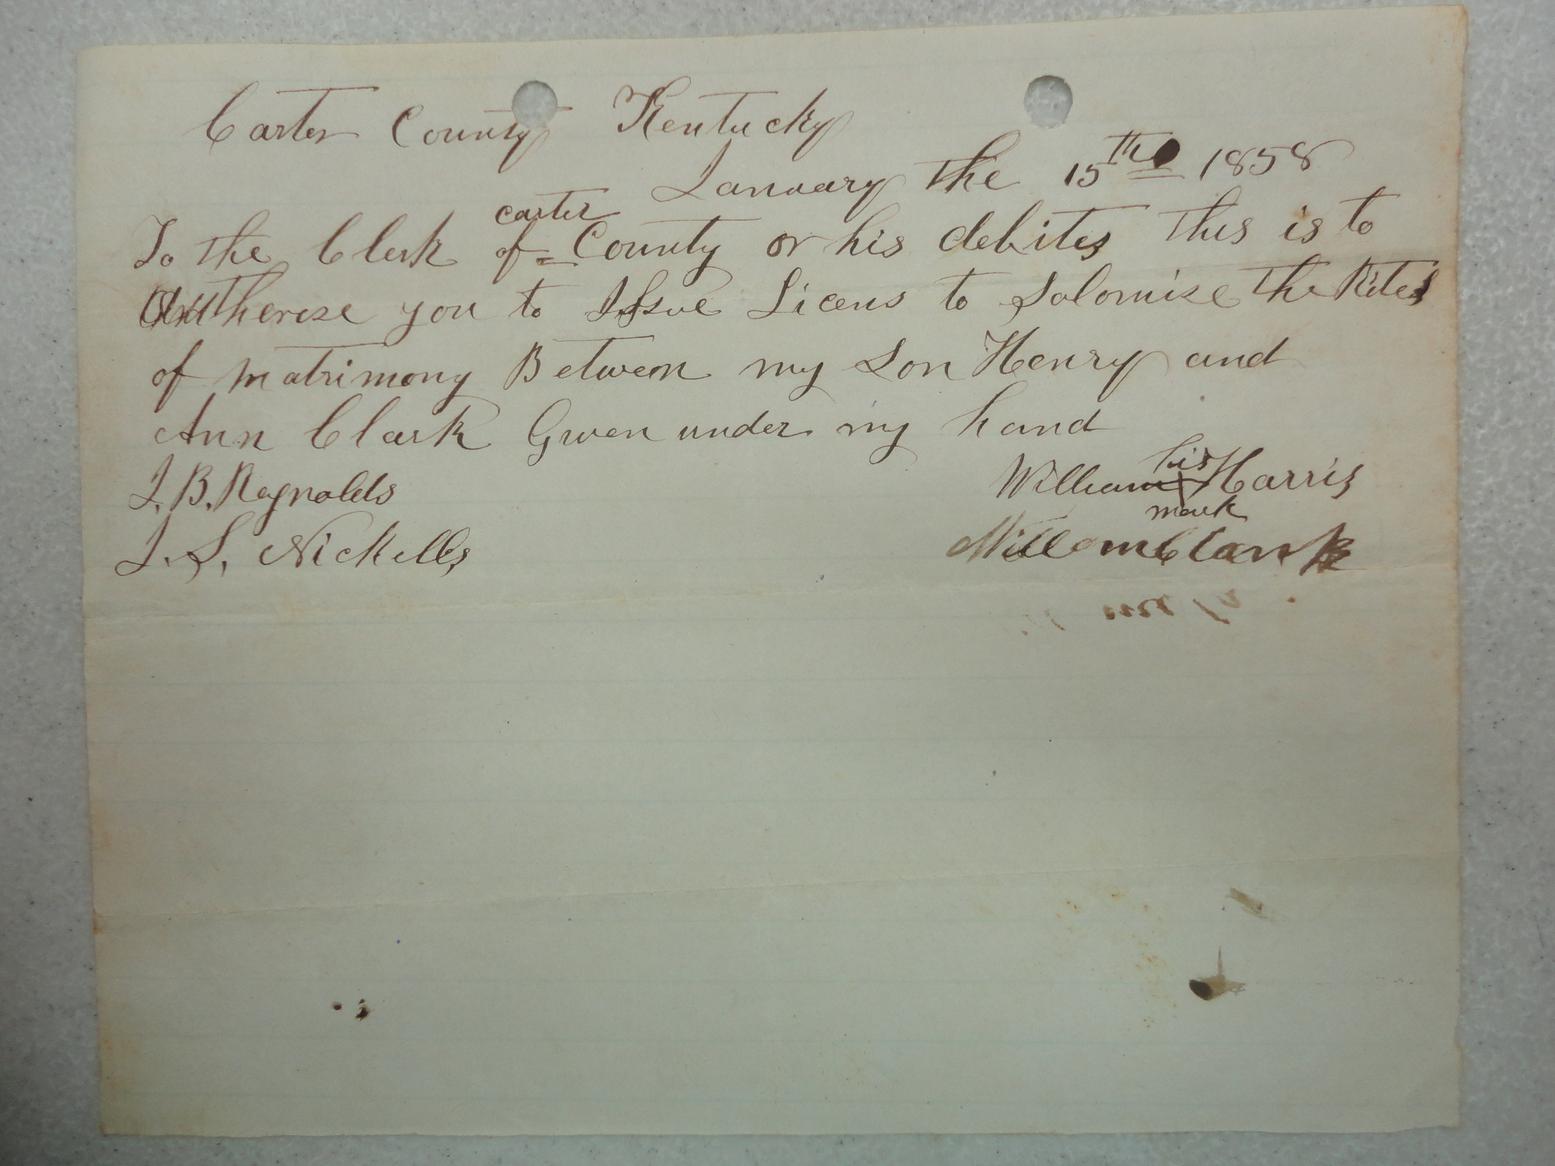 Carter County Kentucky
January the 15th 1858
carter
To the Clerk of = County or his debites this is to
Autherise you to Issue Licens to Solomise the Rites
of matrimony Between my Son Henry and
Ann Clark Given under my hand
J. B. Reynolds
J. S. Nickells
his
William X Harris
mark
Willom Clark